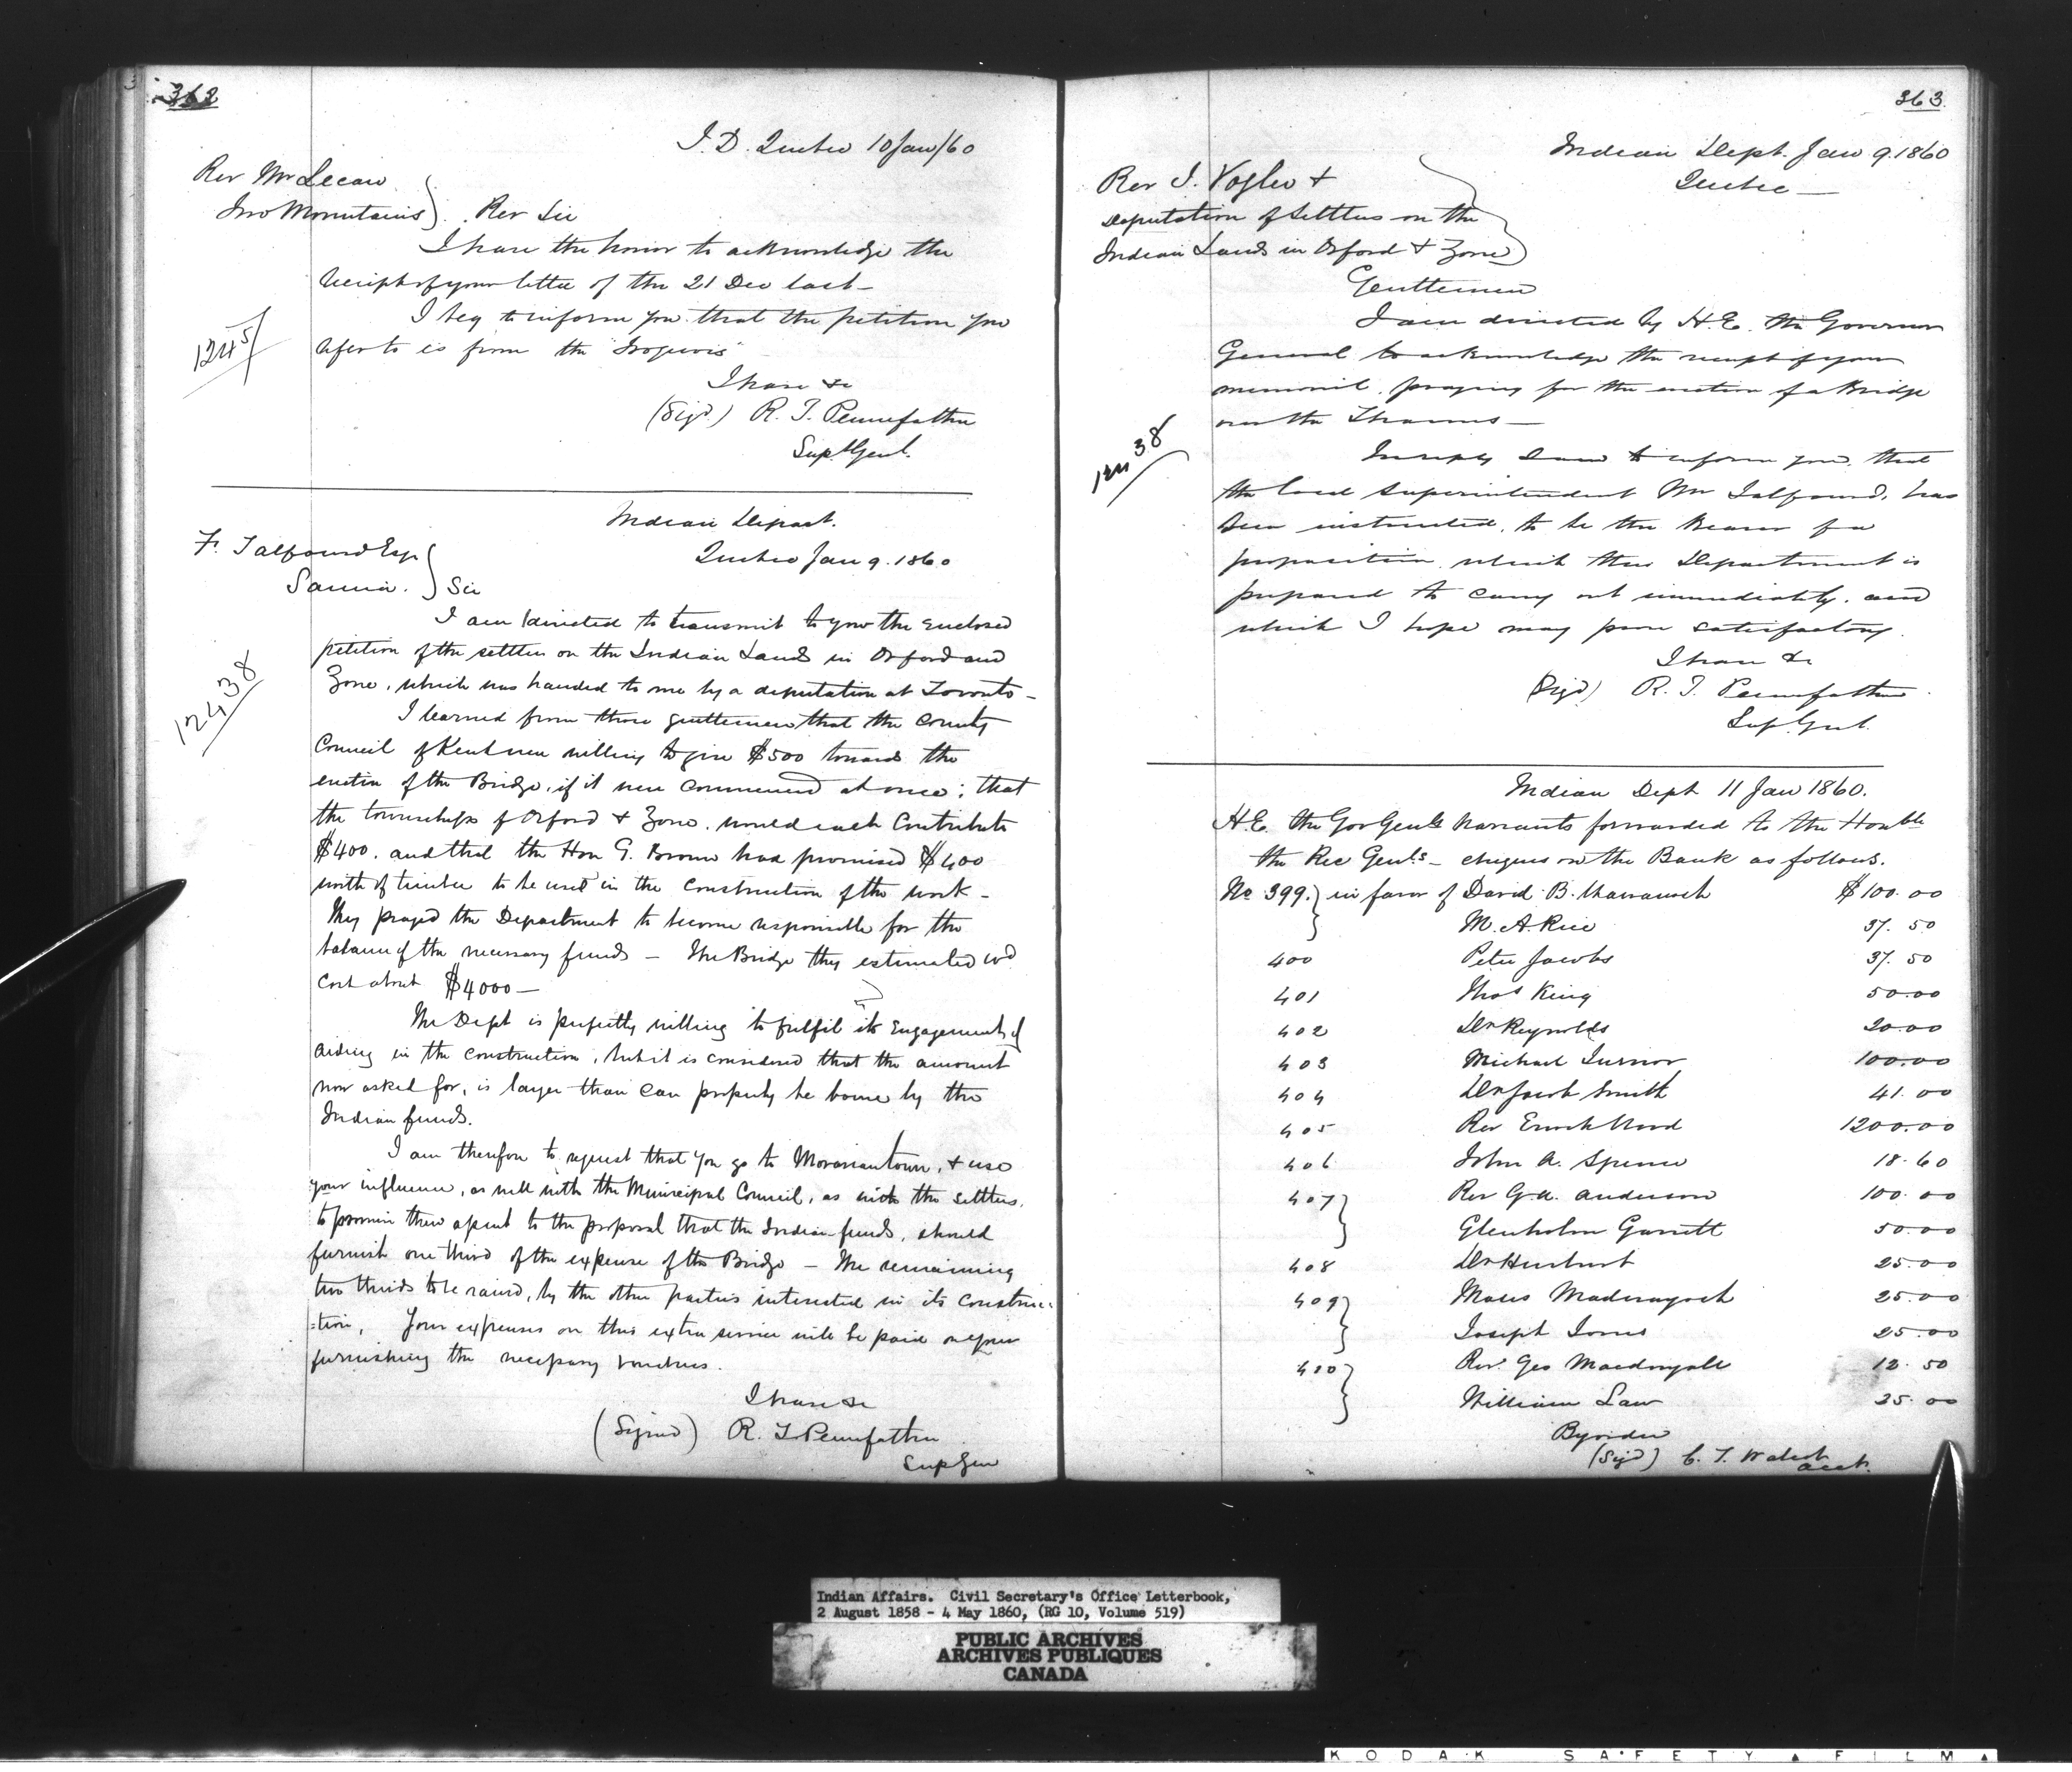 362
I.D. Quebec 10 Jan/60
Rev Mr Lecaw
Two Mountains } Rev Sir
I have the honor to acknowledge the
receipt of your letter of the 21 Dec last –
1245
I beg to inform you that the petition you
refer to is from the "Iroquois"
I have &c
(Sigd.) R. T. Pennefather
Supt Genl.
Indian Depart.
Quebec Jan 9. 1860
F. Talfourd Esqr
Sarnia. } Sir
I am directed to transmit to you the enclosed
petition of the settlers on the Indian Lands in Orford and
Zone, which was handed to me by a deputation at Toronto –
12438
I learned from those gentlemen that the County
Council of Kent were willing to give $500 towards the
erection of the Bridge, if it were commenced at once; that
the townships of Orford & Zone, would each Contribute
$400. and that the Hon G. Brown had promised $400
worth of timber to be used in the construction of the work –
They prayed the Department to become responsible for the
balance of the necessary funds – The Bridge they estimated wd
Cost about $4000 –
The Dept is perfectly willing to fulfil its Engagement of
aiding in the construction, but it is considered that the amount
now asked for, is larger than can properly be borne by the
Indian funds.
I am therefore to request that you go to Moraviantown, & use
your influence, as well with the Municipal Council, as with the settlers,
to their assent to the proposal that the Indian funds, should
furnish one third of the expense of the Bridge – The remaining
two thirds to be raised, by the other parties interested in its construc-
:tion. Your expenses on this extra service will be paid on your
furnishing the necessary vouchers.
I have &c
(Signed) R. T. Pennefather
Sup Gen
363
Indian Dept. Jan 9. 1860
Quebec –
Rev J. Vogler &
Deputation of Settlers on the
Indian Lands in Orford & Zone }
Gentlemen
I am directed by H.E. the Governor
General to acknowledge the receipt of your
memorial, praying for the erection of a Bridge
over the Thames –
12438
In reply I am to inform you, that
the local Superintendent Mr Talfourd, has
been instructed, to be the bearer of a
proposition which this Department is
prepared to carry out immediately. and
which I hope may prove satisfactory.
I have &c
(Sigd) R. T. Pennefather
Sup. Genl.
Indian Dept 11 Jan 1860.
H.E. the Gov Genls Warrants forwarded to the Honble
the Rec Genls – cheques on the Bank as follows.
No 399. } in favor of David B. $100.00
M. A. Rice 37.50
400 Peter Jacobs 37.50
401 Thos King 50.00
402 Dr Reynolds 20.00
403 Michael Turnor 100.00
404 Dr Jacob Smith 41.00
405 Rev Enoch Wood 1200.00
406 John A. Spence 18.60
407 } Rev G.A. Anderson 100.00
Glenholm Garrett 50.00
408 Dr Hurlburt 25.00
409 } Moses Madwayosh 25.00
Joseph Jones 25.00
410 } Rev. Geo Macdougall 12.50
William Law 25.00
By order
(Sigd) C. T. Walcot
Acct.
Indian Affairs. Civil Secretary's Office Letterbook,
2 August 1858 - 4 May 1860, (RG 10, Volume 519)
PUBLIC ARCHIVES
ARCHIVES PUBLIQUES
CANADA
KODAK SAFETY FILM